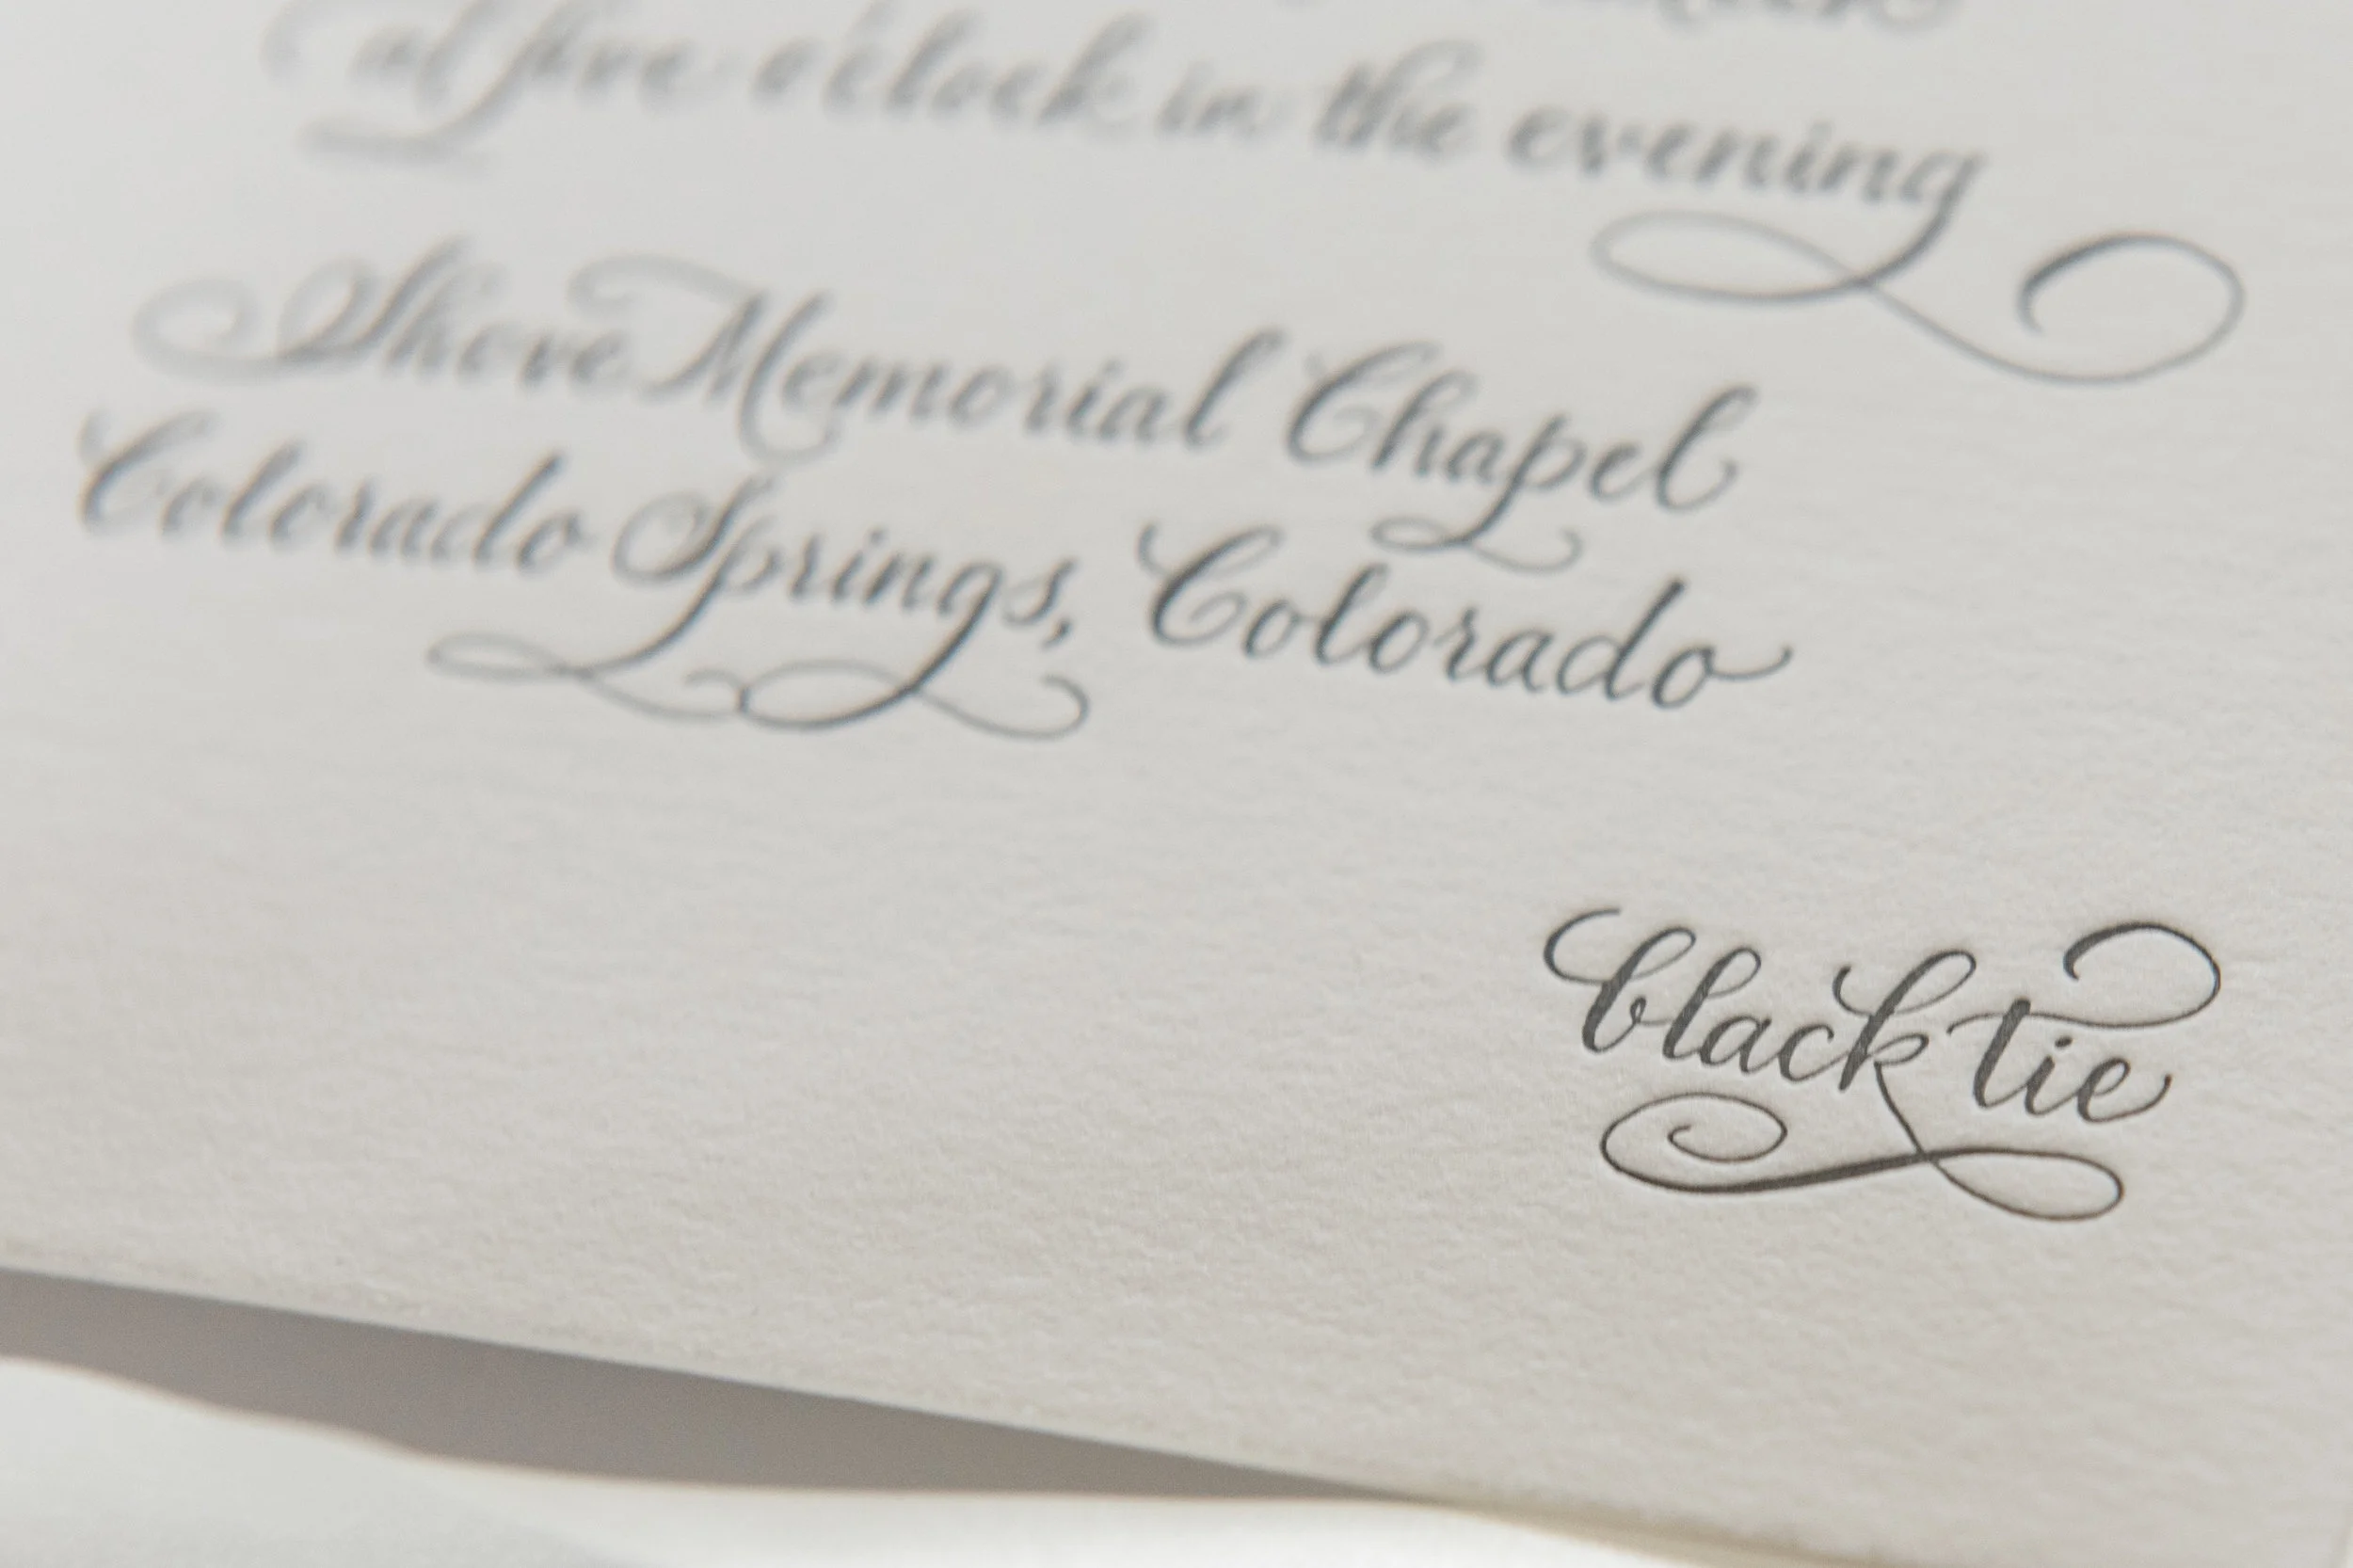 at five o'clock in the evening
Shove Memorial Chapel
Colorado Springs, Colorado
black tie